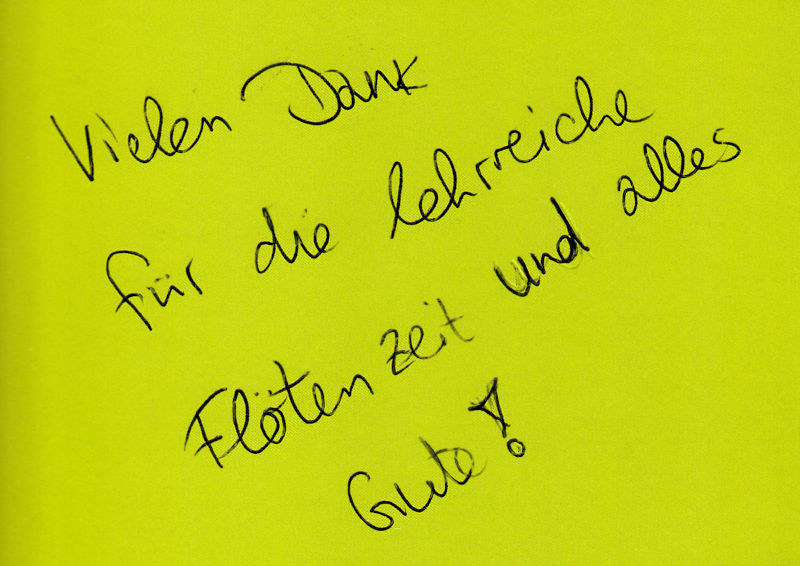 Vielen Dank
für die lehrreiche
Flötenzeit und alles
Gute!